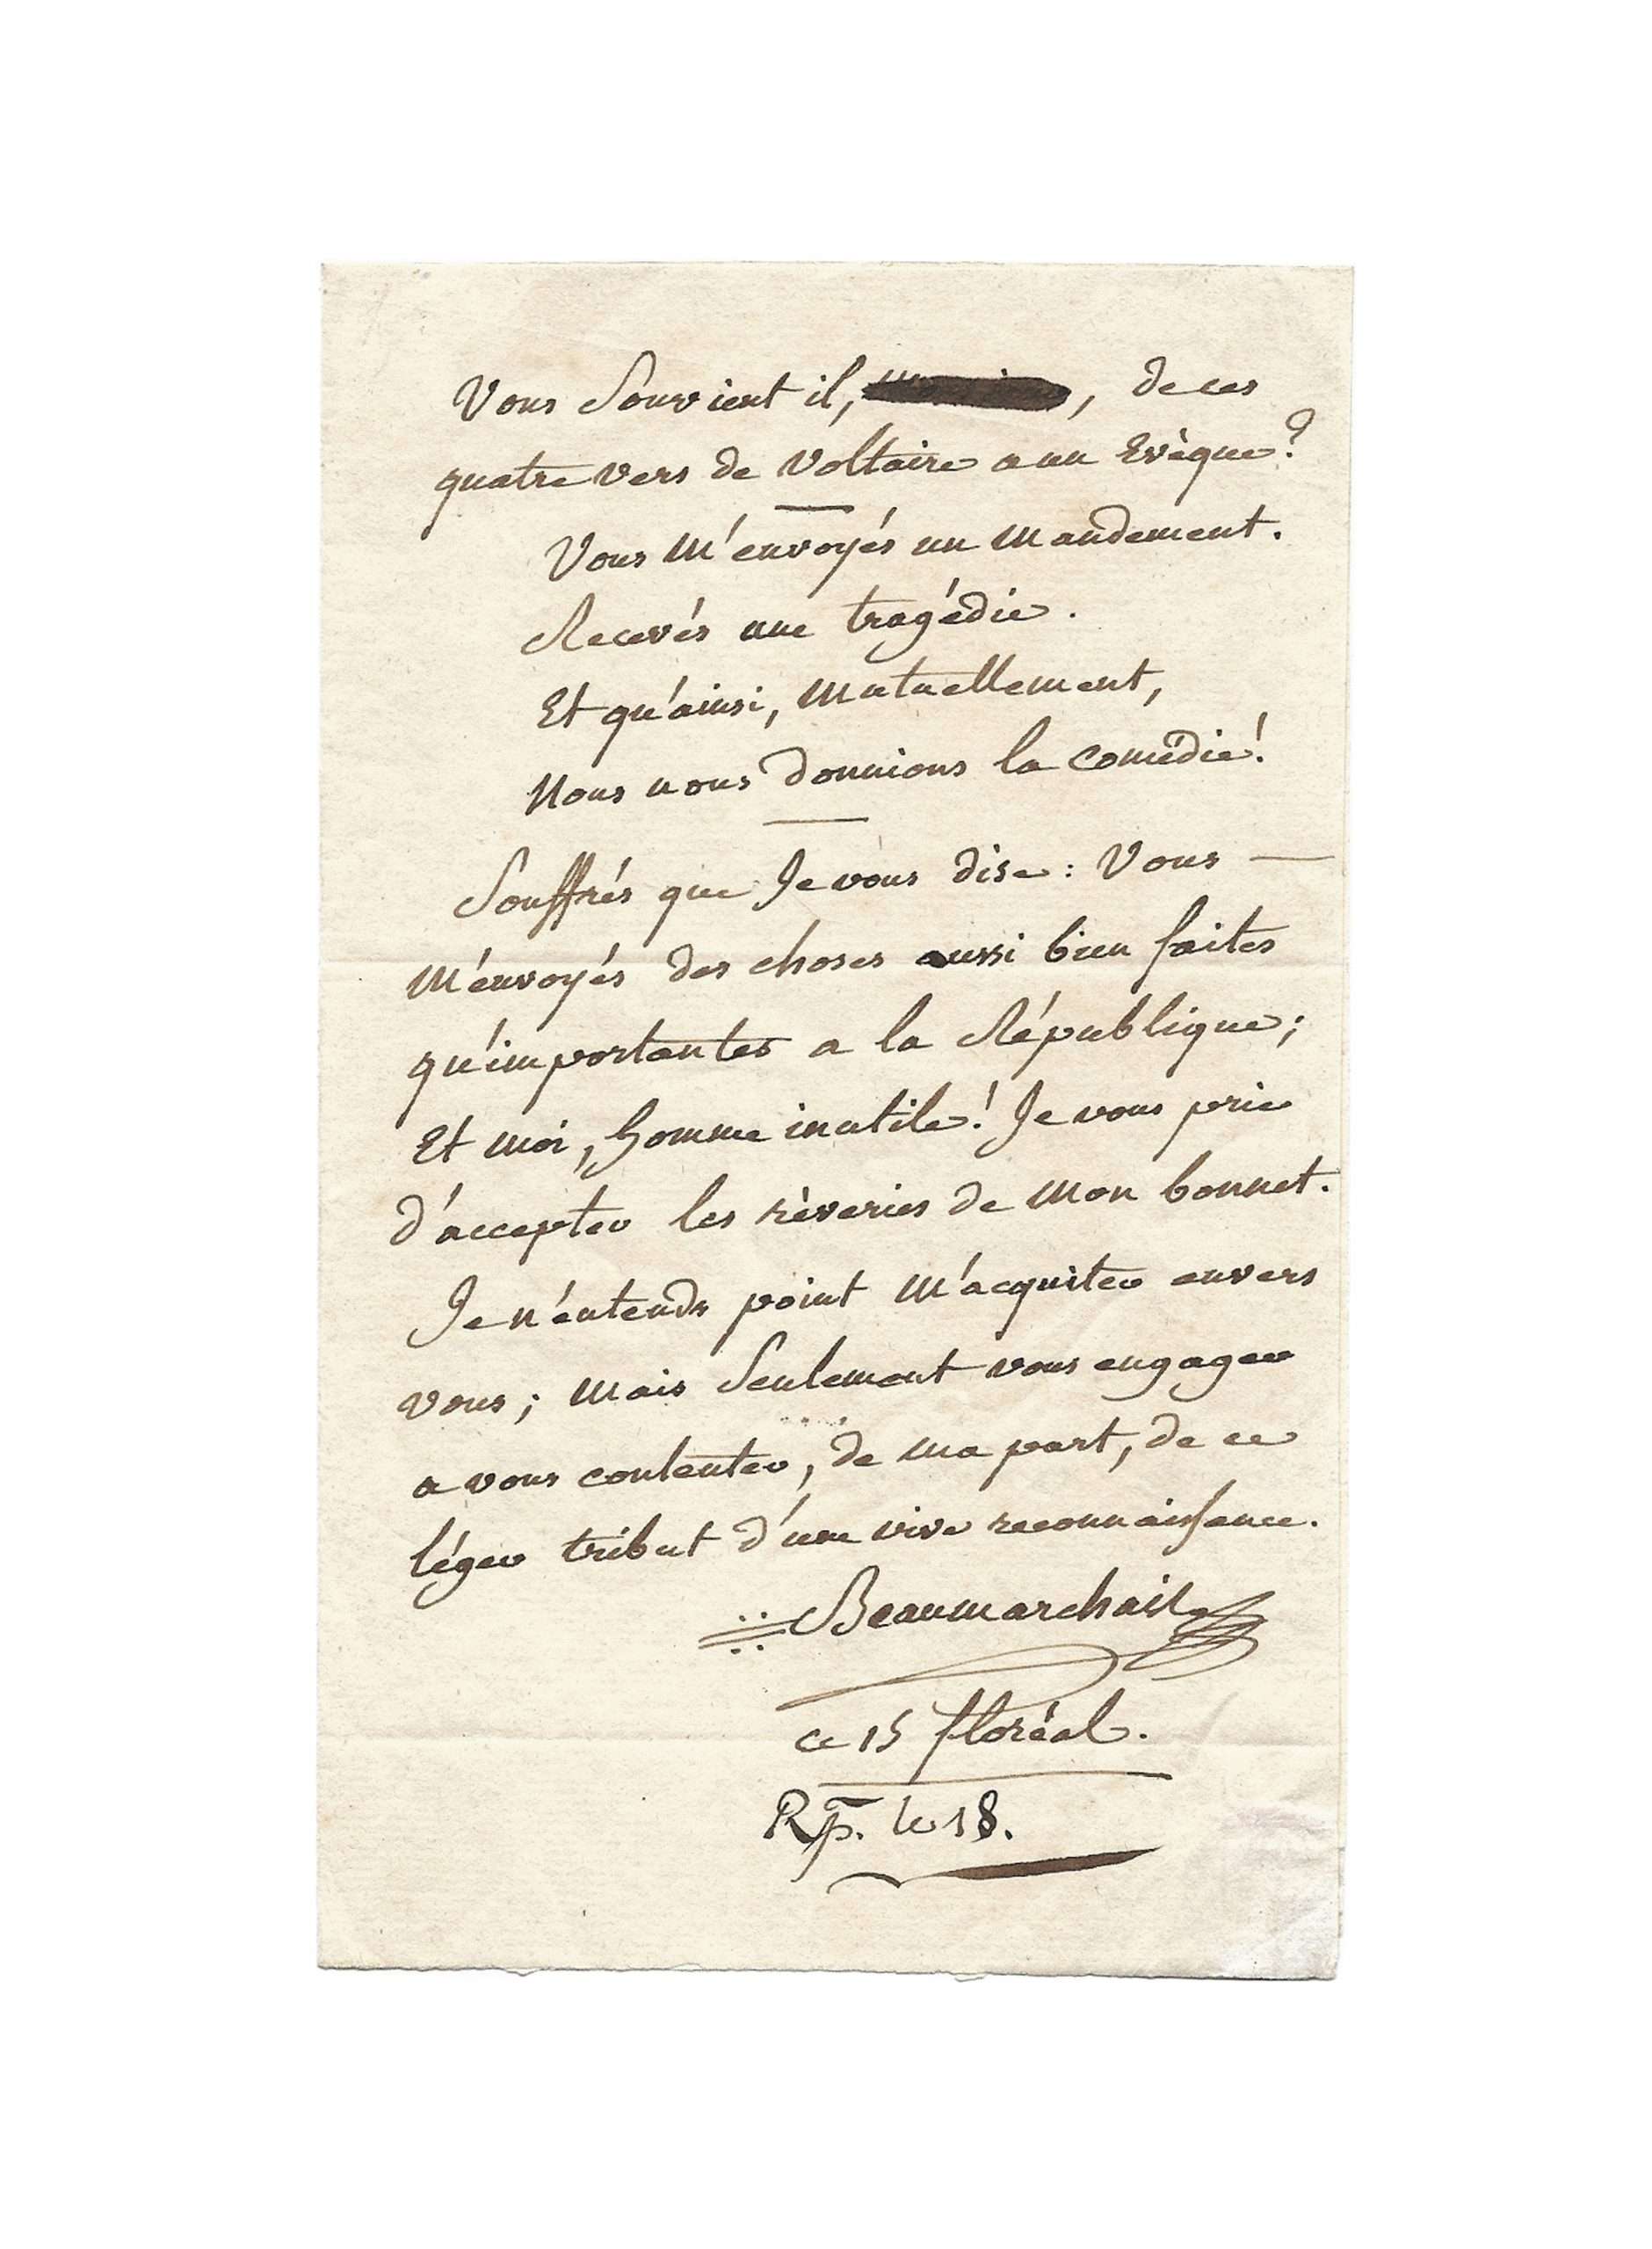 Vous Souvient il, , de ces
quatre vers de Voltaire a un Evèque?
Vous M'envoyés un Mandement.
Recevés une tragédie.
Et qu'ainsi, Mutuellement,
Nous nous donnions la Comédie!
Souffrés que Je vous dise : Vous —
M'envoyés des choses aussi bien faites
qu'importantes a la République;
Et moi, homme inutile! Je vous prie
d'accepter les rèveries de Mon bonnet.
Je n'entends point M'acquiter envers
vous; Mais Seulement vous engager
a vous contenter, de Ma part, de ce
léger tribut d'une vive reconnaissance.
Beaumarchais
ce 15 floréal.
Rp. le 18.